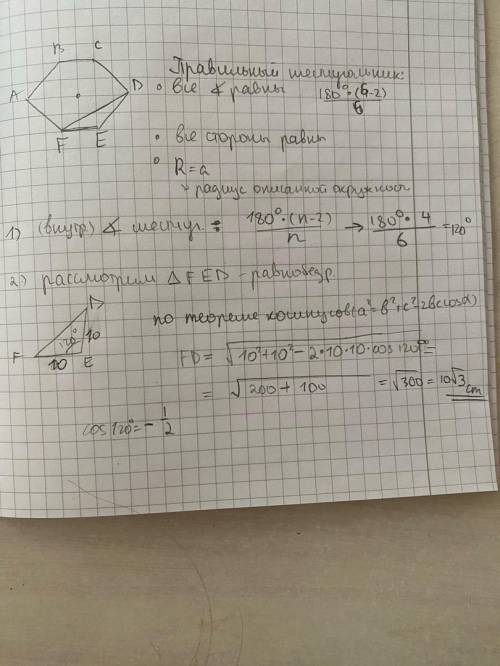 B C
A D
F E
Правильный шестиугольник:
• все ∢ равны 180°·(6-2)/6
• все стороны равны
• R = a
радиус описанной окружност
1) (внутр) ∢ шестиуг. = 180°·(n-2)/n → 180°·4/6 = 120°
2) рассмотрим △FED - равнобедр.
D
F 120° 10
10 E
по теореме косинусов (a²=b²+c²-2bc cosα)
FD = √10²+10²-2·10·10·cos120° =
= √200+100 = √300 = 10√3 cm
cos120° = -1/2